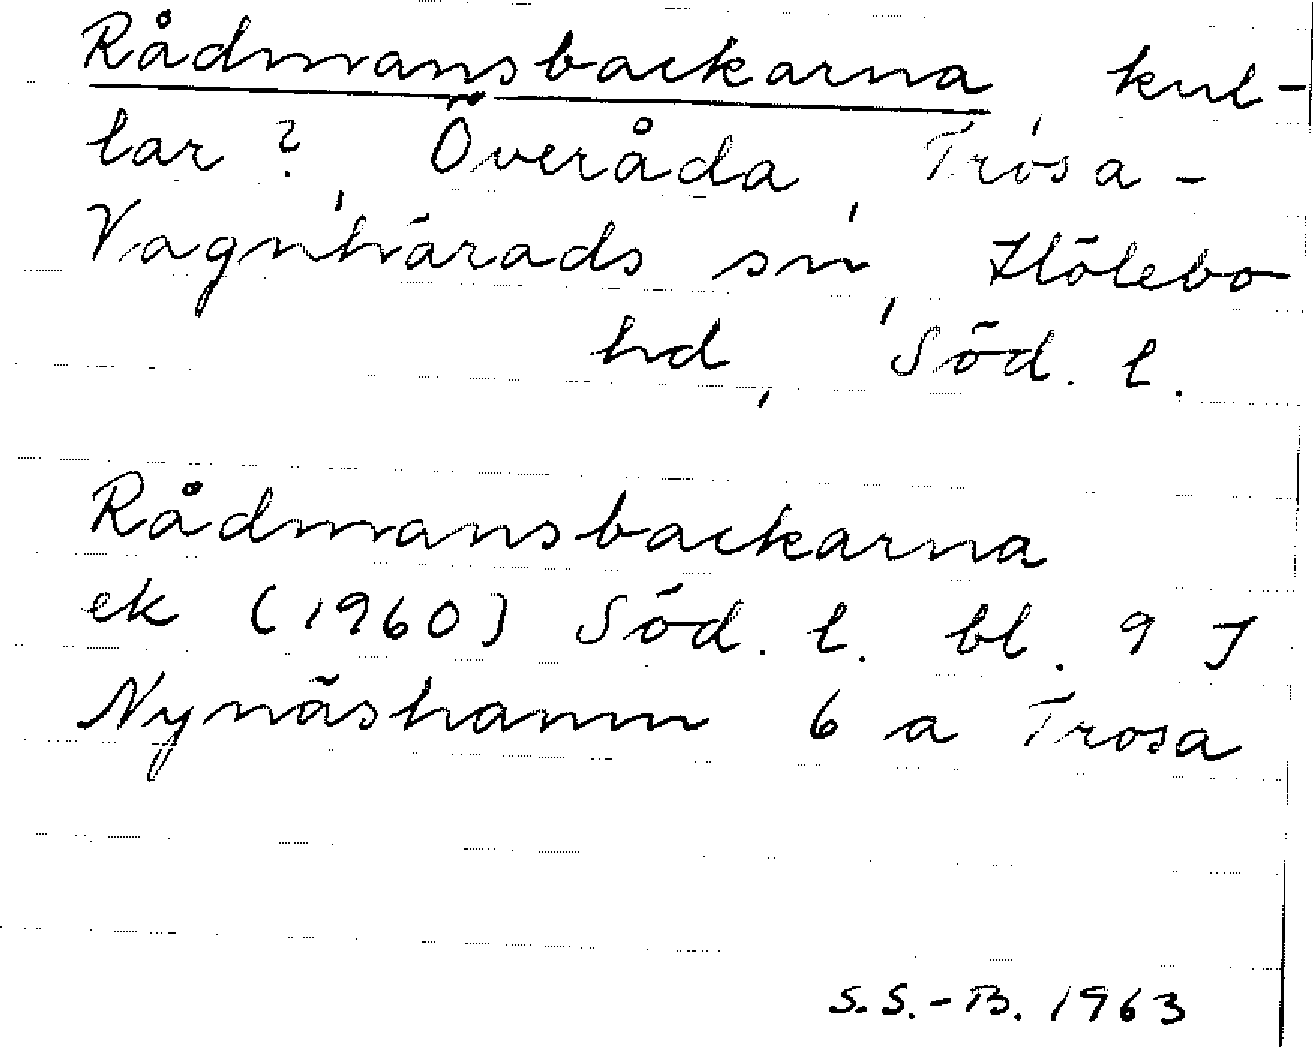 Rådmansbackarna, kul-
lar?, Överåda, Trosa-
Vagnhärads sn, Hölebo
hd, Söd. l.
Rådmansbackarna
ek (1960) Söd. l. bl. 9 I
Nynäshamn 6 a Trosa
S.S.-B. 1963